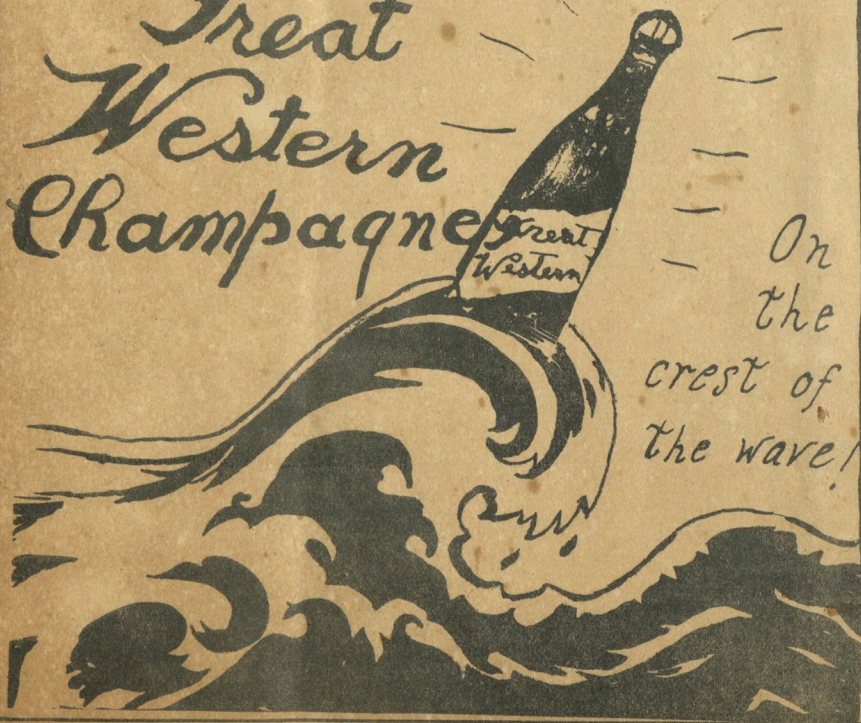 Great
Western
Champagne
Great
Western
On
the
crest of
the wave!